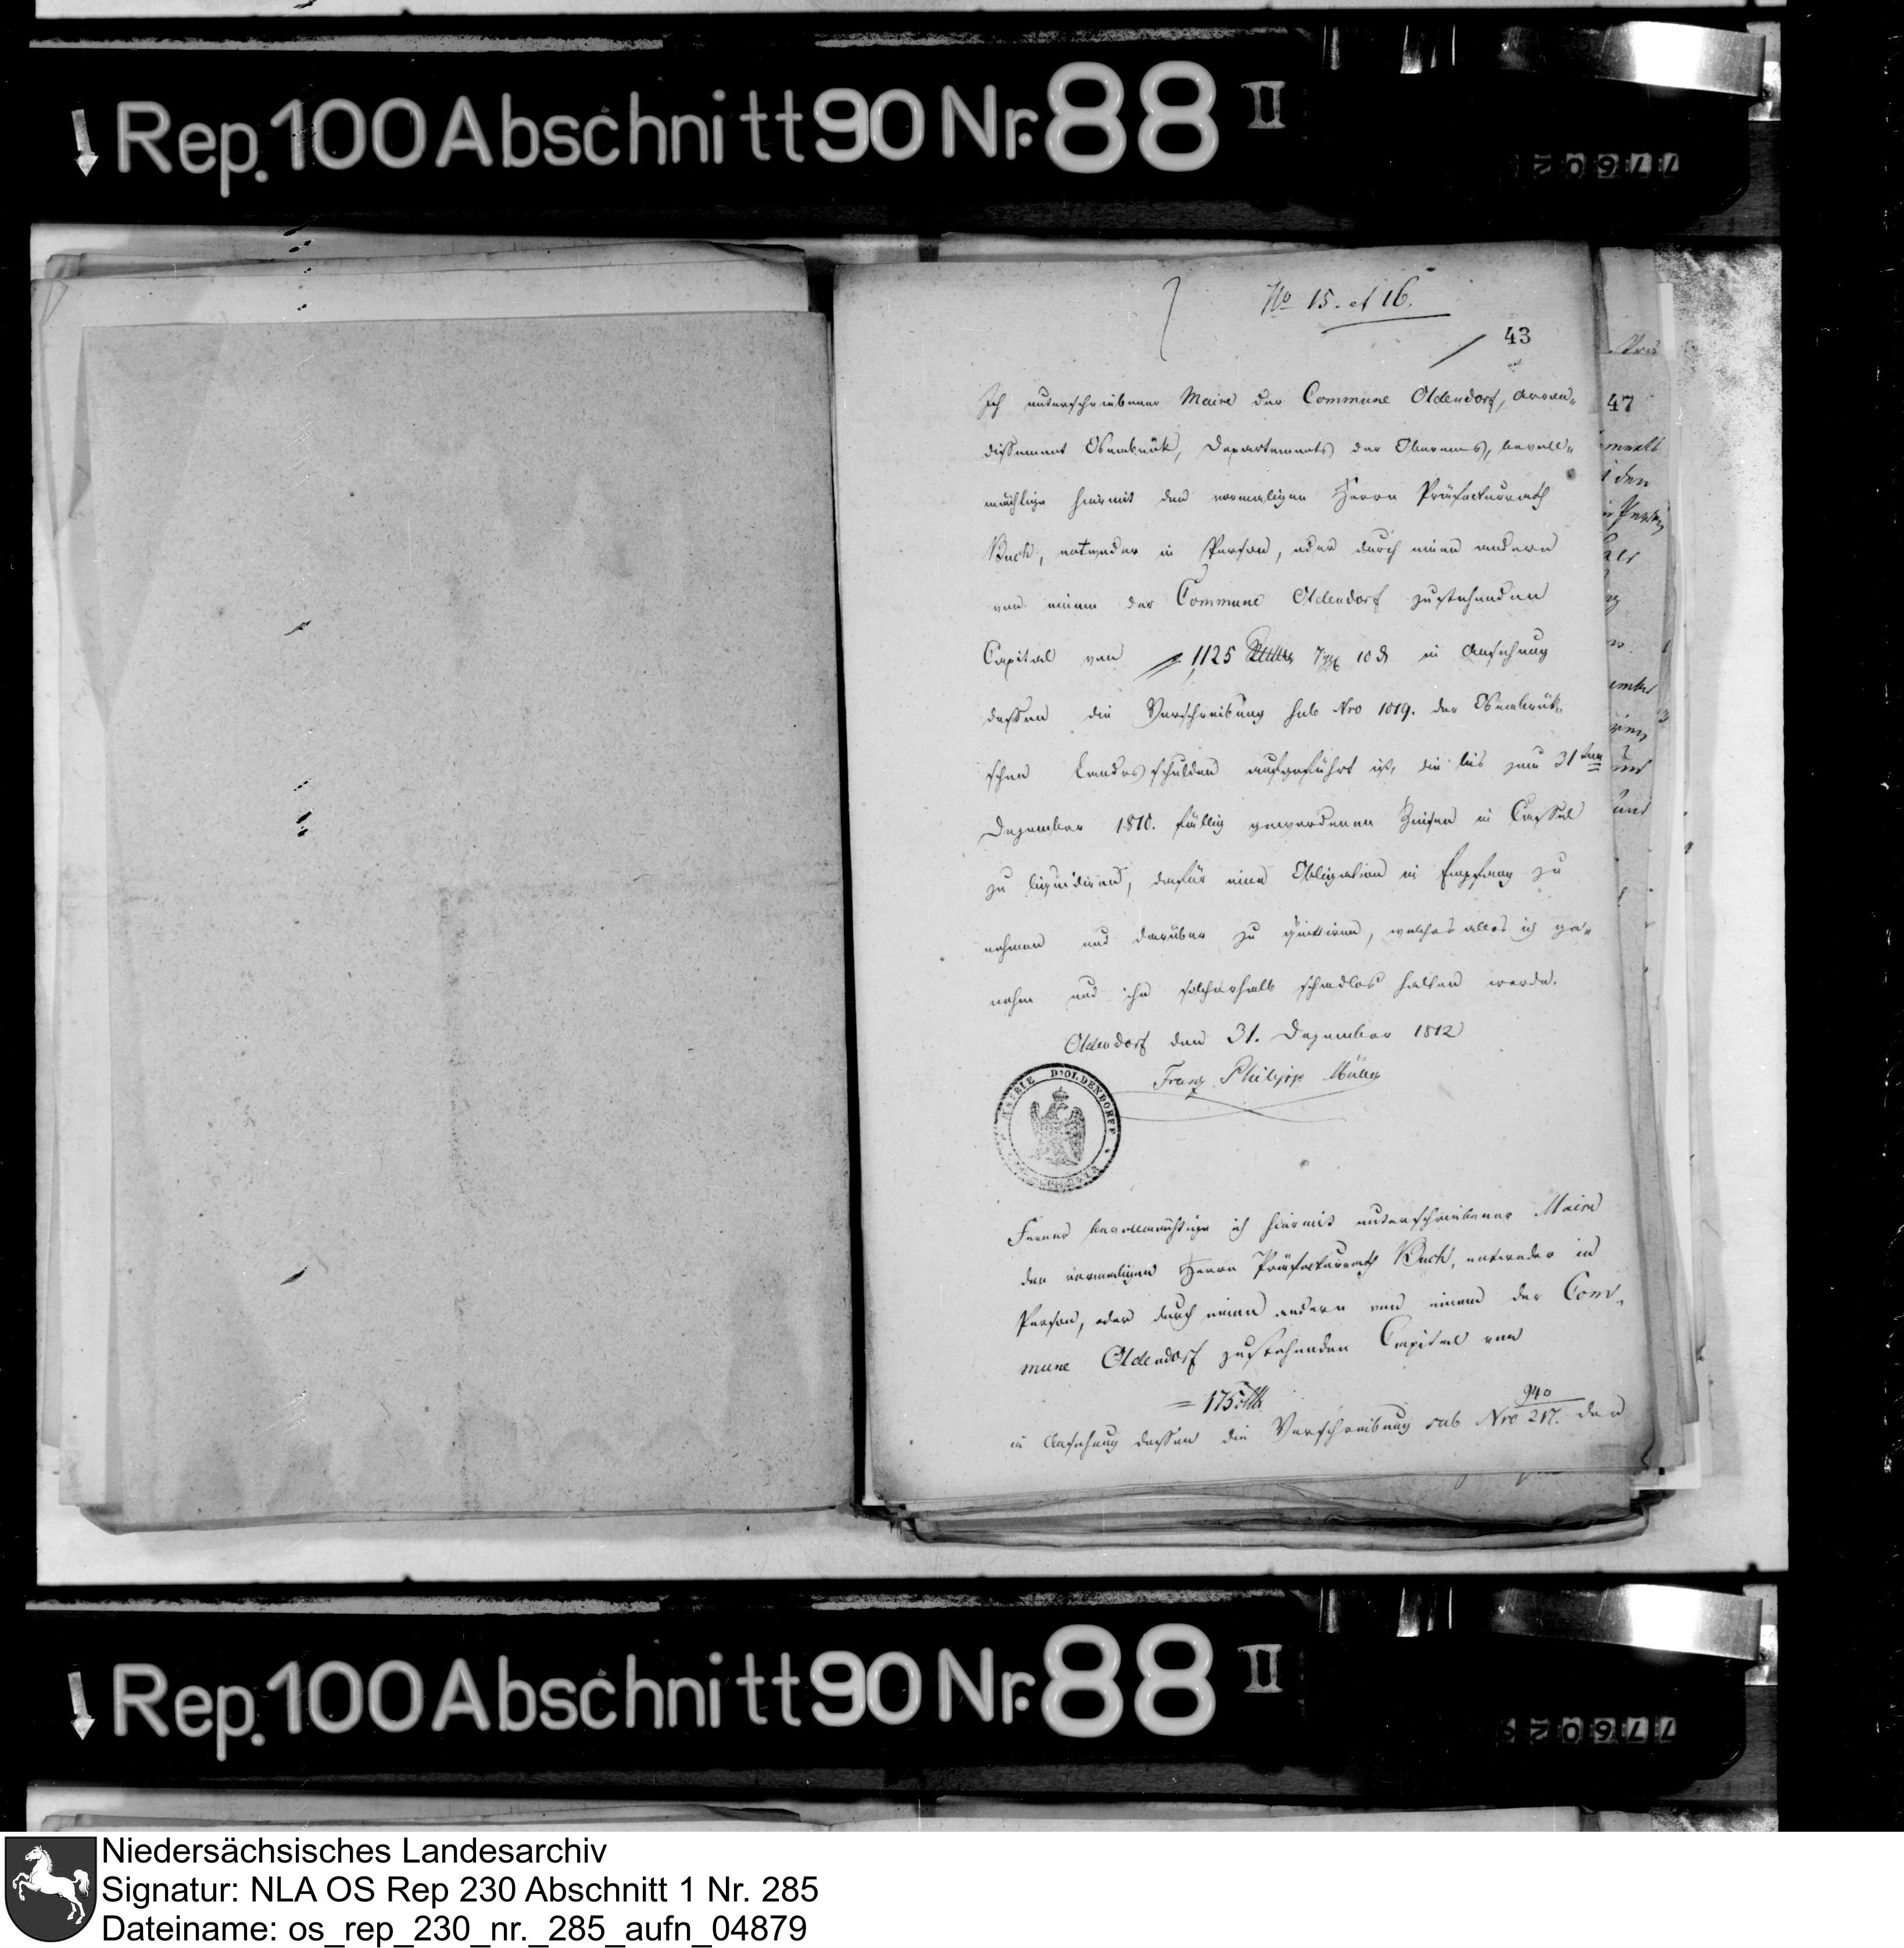 Rep. 100 Abschnitt 90 Nr. 88 II
77609
No 15. et 16.
43
Ich unterschriebener Maire der Commune Oldendorf, Arron„
dissement Osnabrük, Departements der Oberems, bevoll„
mächtige hiermit den vormaligen Herrn Präfecturrath
Buch, entweder in Person, oder durch einen andern
von einem der Commune Oldendorf zustehenden
Capital von 1125 7 10 in Ansehung
dessen die Verschreibung sub Nro 1019. der Osnabrük„
schen Landesschulden aufgeführt ist, die bis zum 31ten
Dezember 1810. fällig gewordenen Zinsen in Cassel
zu liquidiren, dafür eine Obligation in Empfang zu
nehmen und darüber zu quittiren, welches alles ich ge„
nehm und ihn solcherhalb schadlos halten werde.
Oldendorf den 31. Dezember 1812
Franz Philipp Müller
MAIRIE D'OLDENDORFF
Ferner bevollmächtige ich hiermit unterschriebener Maire
den vormaligen Herrn Präfecturrath Buch, entweder in
Person, oder durch einen andern von einem der Com„
mune Oldendorf zustehenden Capital von
= 175
940
in Ansehung dessen die Verschreibung sub Nro 217. der
47
den
und
Rep. 100 Abschnitt 90 Nr. 88 II
77609
Niedersächsisches Landesarchiv
Signatur: NLA OS Rep 230 Abschnitt 1 Nr. 285
Dateiname: os_rep_230_nr._285_aufn_04879